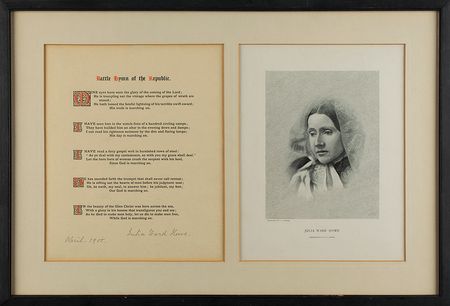 Battle Hymn of the Republic.
MINE eyes have seen the glory of the coming of the Lord;
He is trampling out the vintage where the grapes of wrath are
stored;
He hath loosed the fateful lightning of his terrible swift sword:
His truth is marching on.
I HAVE seen him in the watch-fires of a hundred circling camps;
They have builded him an altar in the evening dews and damps;
I can read his righteous sentence by the dim and flaring lamps;
His day is marching on.
I HAVE read a fiery gospel writ in burnished rows of steel:
"As ye deal with my contemners, so with you my grace shall deal;"
Let the hero born of woman crush the serpent with his heel,
Since God is marching on.
HE has sounded forth the trumpet that shall never call retreat;
He is sifting out the hearts of men before his judgment seat;
Oh, be swift, my soul, to answer him; be jubilant, my feet,
Our God is marching on.
IN the beauty of the lilies Christ was born across the sea,
With a glory in his bosom that transfigures you and me;
As he died to make men holy, let us die to make men free,
While God is marching on.
Julia Ward Howe.
April. 1905.
JULIA WARD HOWE